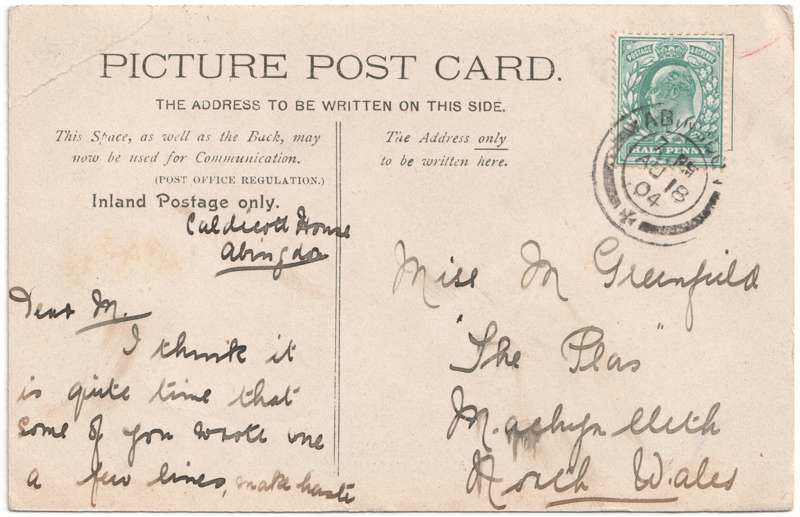 PICTURE POST CARD.
THE ADDRESS TO BE WRITTEN ON THIS SIDE.
This Space, as well as the Back, may
now be used for Communication.
(POST OFFICE REGULATION.)
Inland Postage only.
Caldicott House
Abingdon
Dear M.
I think it
is quite time that
some of you wrote me
a few lines, make haste
The Address only
to be written here.
POSTAGE & REVENUE
HALF PENNY
ABINGDON
AU 18
04
Miss M Greenfield
"The Plas"
Machynlleth
North Wales